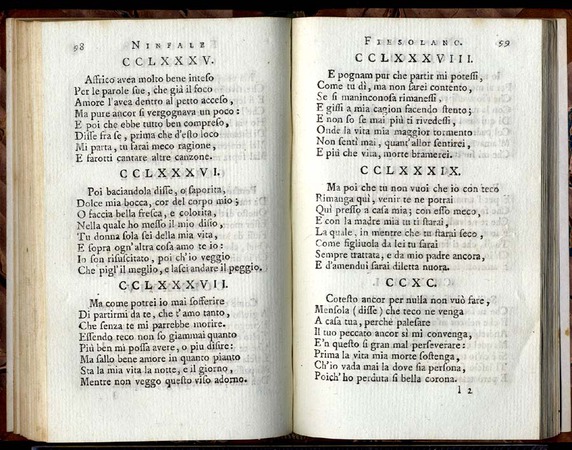 98 NINFALE
CCLXXXV.
Affrico avea molto bene inteso
Per le parole sue, che già il foco
Amore l'avea dentro al petto acceso,
Ma pure ancor si vergognava un poco:
E poi che ebbe tutto ben compreso,
Disse fra se, prima che d'esto loco
Mi parta, tu farai meco ragione,
E farotti cantare altre canzone.
CCLXXXVI.
Poi baciandola disse, o saporita,
Dolce mia bocca, cor del corpo mio;
O faccia bella fresca, e colorita,
Nella quale ho messo il mio disio,
Tu donna sola sei della mia vita,
E sopra ogn'altra cosa amo te io:
Io son risuscitato, poi ch'io veggio
Che pigl'il meglio, e lasci andare il peggio.
CCLXXXVII.
Ma come potrei io mai sofferire
Di partirmi da te, che t'amo tanto,
Che senza te mi parrebbe morire.
Essendo teco non so giammai quanto
Più ben mi possa avere, o più disire:
Ma sallo bene amore in quanto pianto
Sta la mia vita la notte, e il giorno,
Mentre non veggo questo viso adorno.
FIESOLANO. 99
CCLXXXVIII.
E pognam pur che partir mi potessi,
Come tu di, ma non sarei contento,
Se si maninconosa rimanessi,
E gissi a mia cagion facendo stento;
E non so se mai più ti rivedessi,
Onde la vita mia maggior tormento
Non sentì mai, quant'allor sentirei,
E più che vita, morte bramerei.
CCLXXXIX.
Ma poi che tu non vuoi che io con teco
Rimanga quì, venir te ne potrai
Quì presso a casa mia; con esso meco,
E con la madre mia tu ti starai,
La quale, in mentre che tu starai seco,
Come figliuola da lei tu sarai
Sempre trattata, e da mio padre ancora,
E d'amendui sarai diletta nuora.
CCXC.
Cotesto ancor per nulla non vuò fare,
Mensola (disse) che teco ne venga
A casa tua, perchè palesare
Il tuo peccato ancor si mi convenga,
E'n questo si gran mal perseverare:
Prima la vita mia morte sostenga,
Ch'io vada mai la dove sia persona,
Poich'ho perduta sì bella corona.
I 2